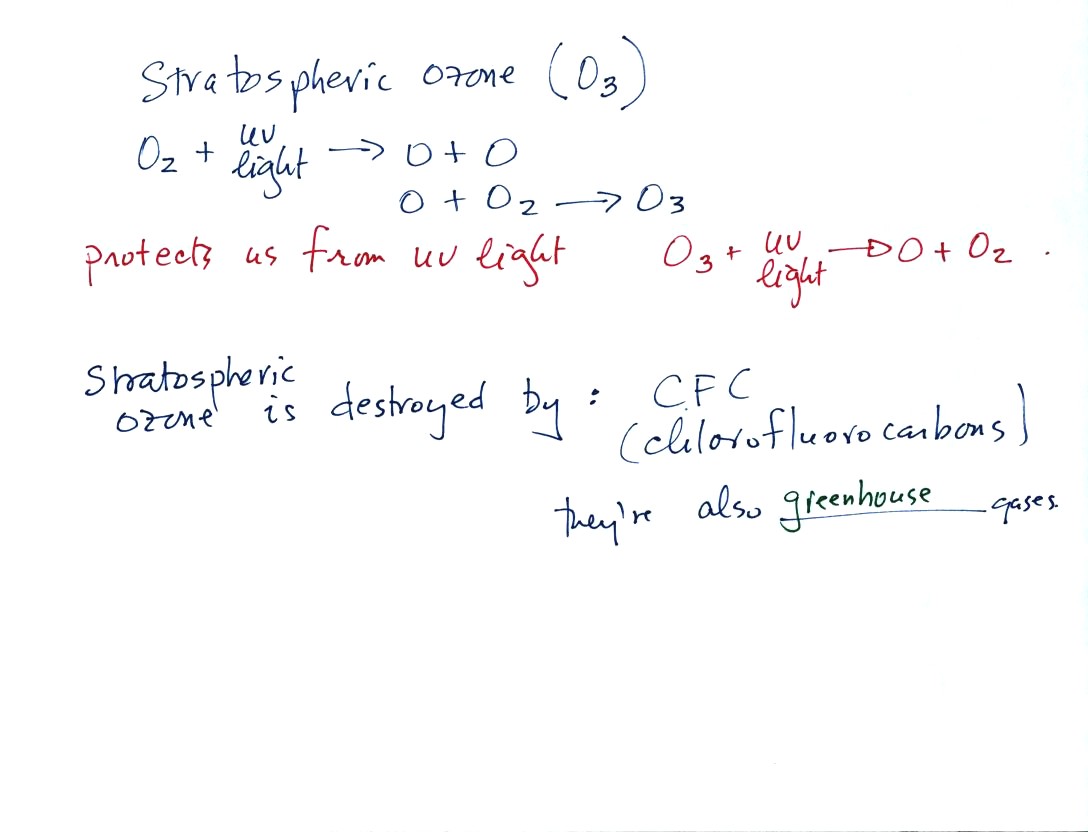 Stratospheric ozone (O₃)
O₂ + uv light → O + O
O + O₂ → O₃
protects us from uv light O₃ + uv light → O + O₂ .
Stratospheric ozone is destroyed by : CFC
(chlorofluorocarbons)
they're also greenhouse gases.